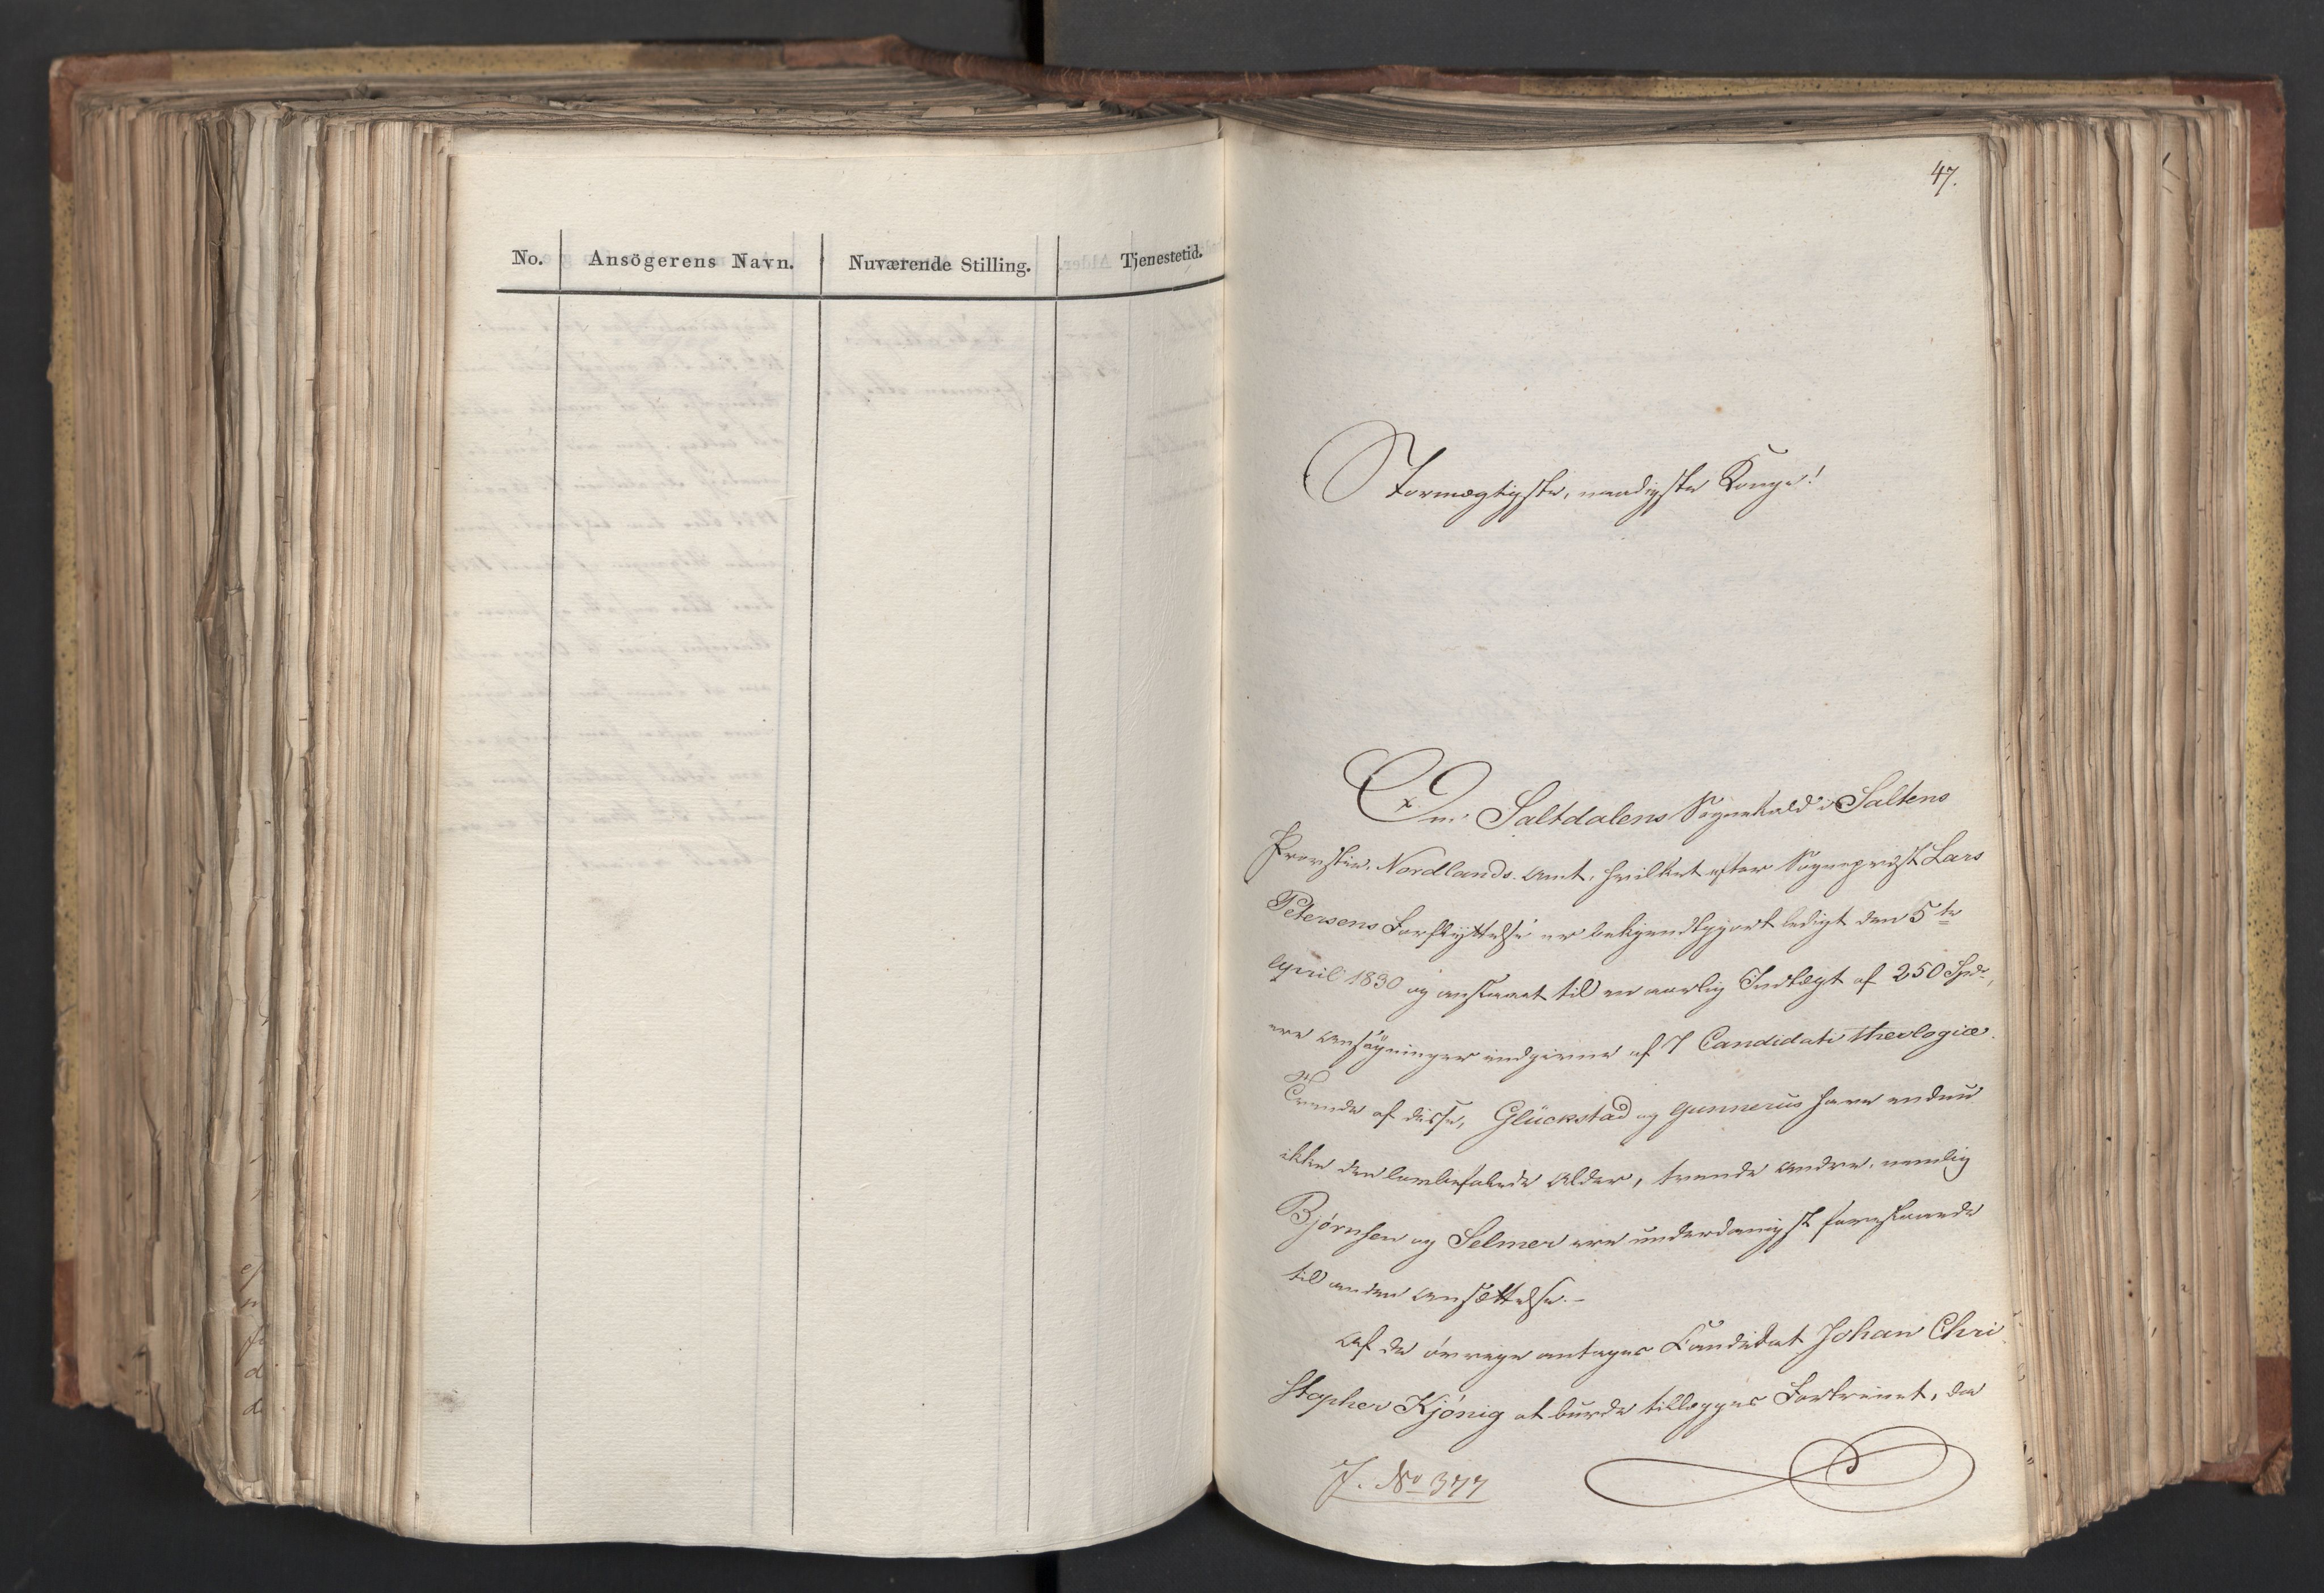 No. Ansögerens Navn. Nuværende Stilling. Tjenestetid.
47.
Stormægtigste, naadigste Konge!
Om Saltdalens Sognekald i Saltens
Provstie, Nordlands Amt, hvilket efter Sogneprest Lars
Petersens Forflyttelse er bekjendtgjort ledigt den 5te
April 1830 og anslaaet til en aarlig Indtægt af 250 Spd.,
ere Ansøgninger indgivne af 7 Candidati theologiæ.
Tvende af disse, Glückstad og Gunnerus have endnu
ikke den lovbefalede Alder, tvende andre, nemlig
Bjørnsen og Selmer ere underdanigst foreslaaede
til anden Ansættelse.-
Af de øvrige antages Candidat Johan Chri
stopher Kjønig at burde tillægges Fortrinet, da
J. No 377